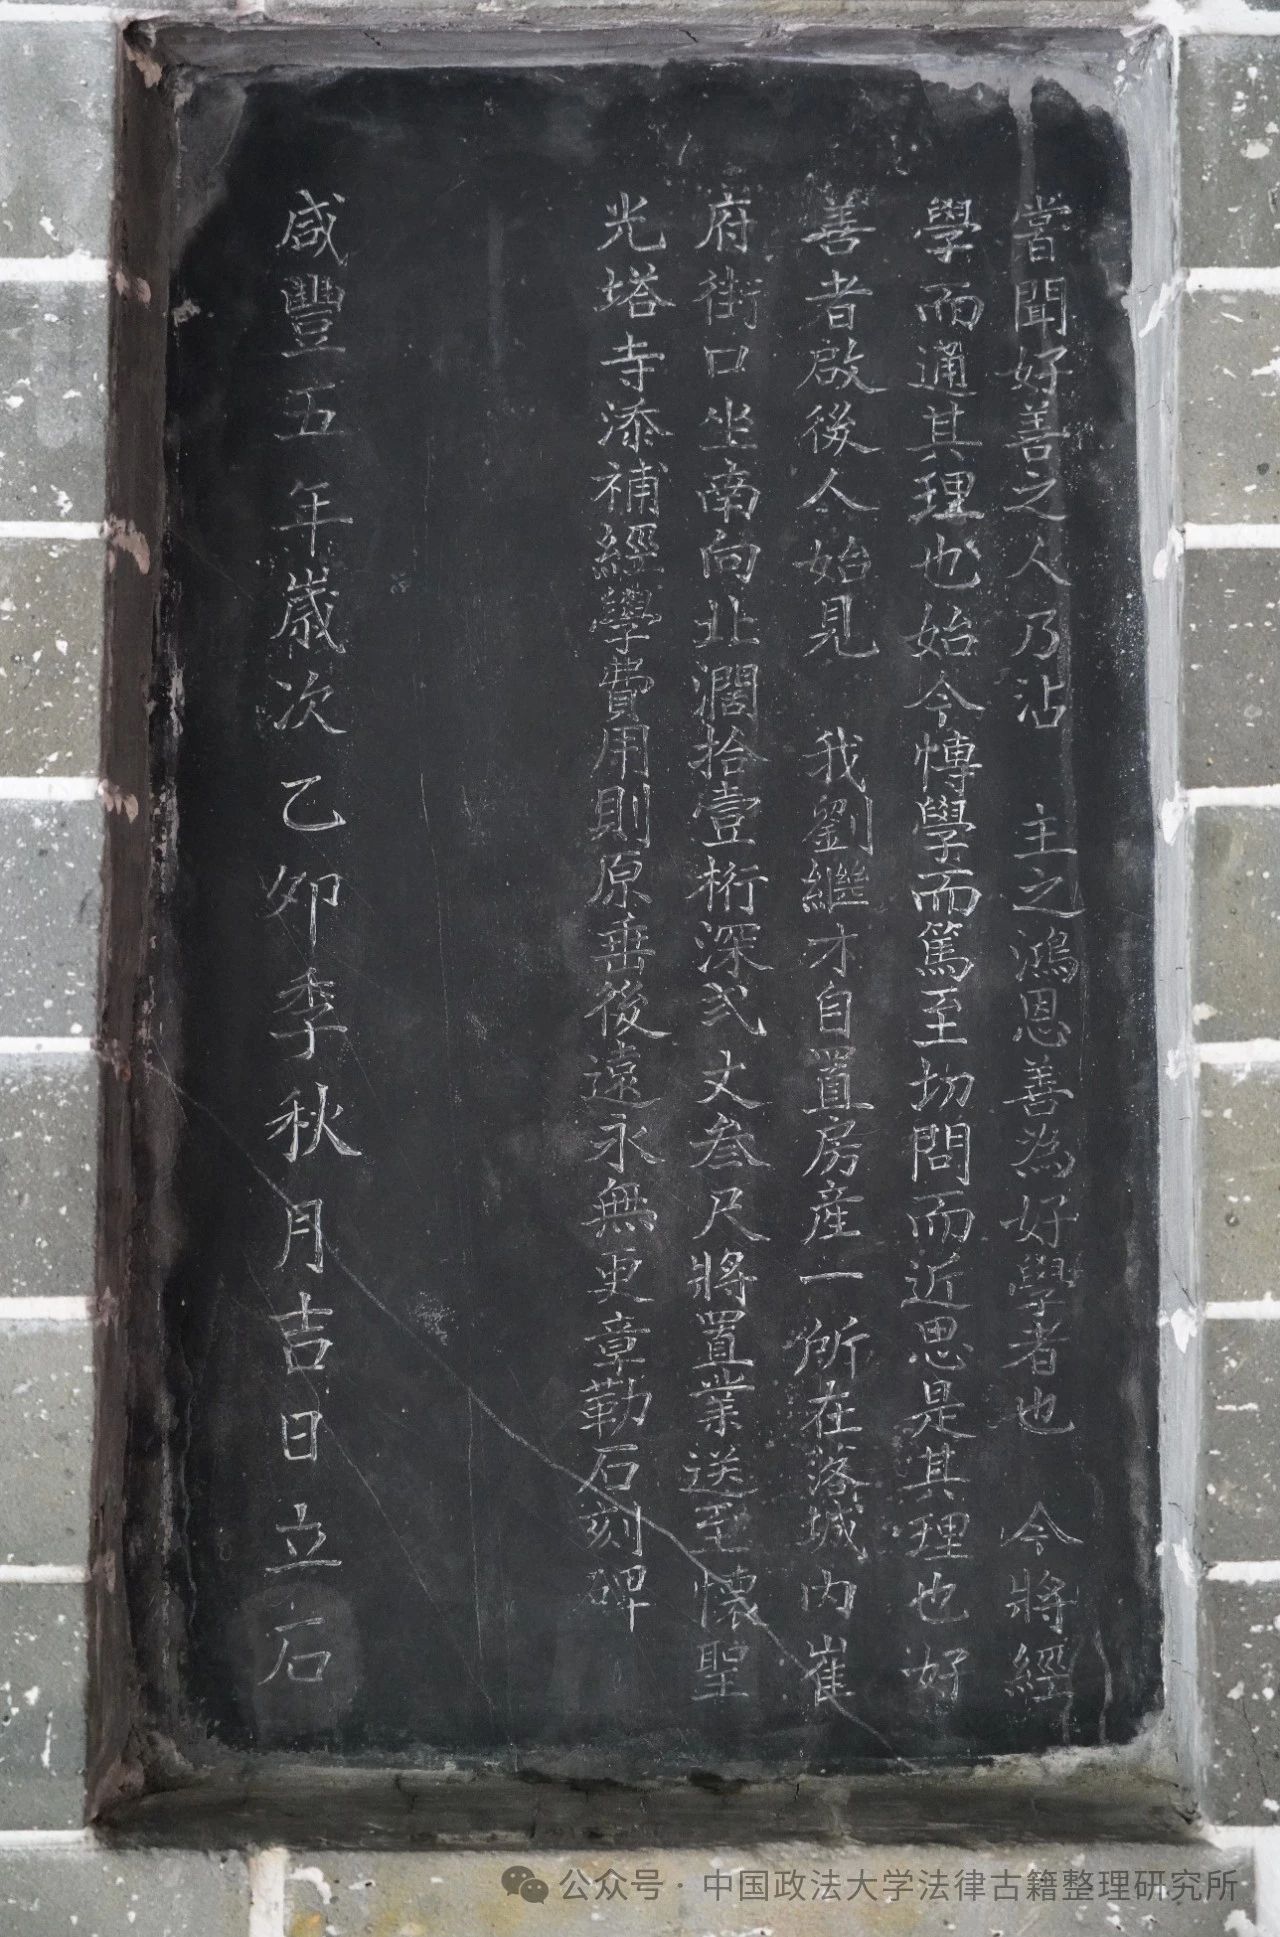 嘗聞好善之人乃沾　主之鴻恩善為好學者也　今將經
學而通其理也始令愽學而篤至切問而近思是其理也好
善者啟後人始見　我劉繼才自置房產一所在落城內崔
府街口坐南向北濶拾壹桁深弍丈叁尺將置業送至懷聖
光塔寺添補經學費用則原垂後遠永無更章勒石刻碑
咸豐五年歲次乙卯季秋月吉日立石
公众号·中国政法大学法律古籍整理研究所